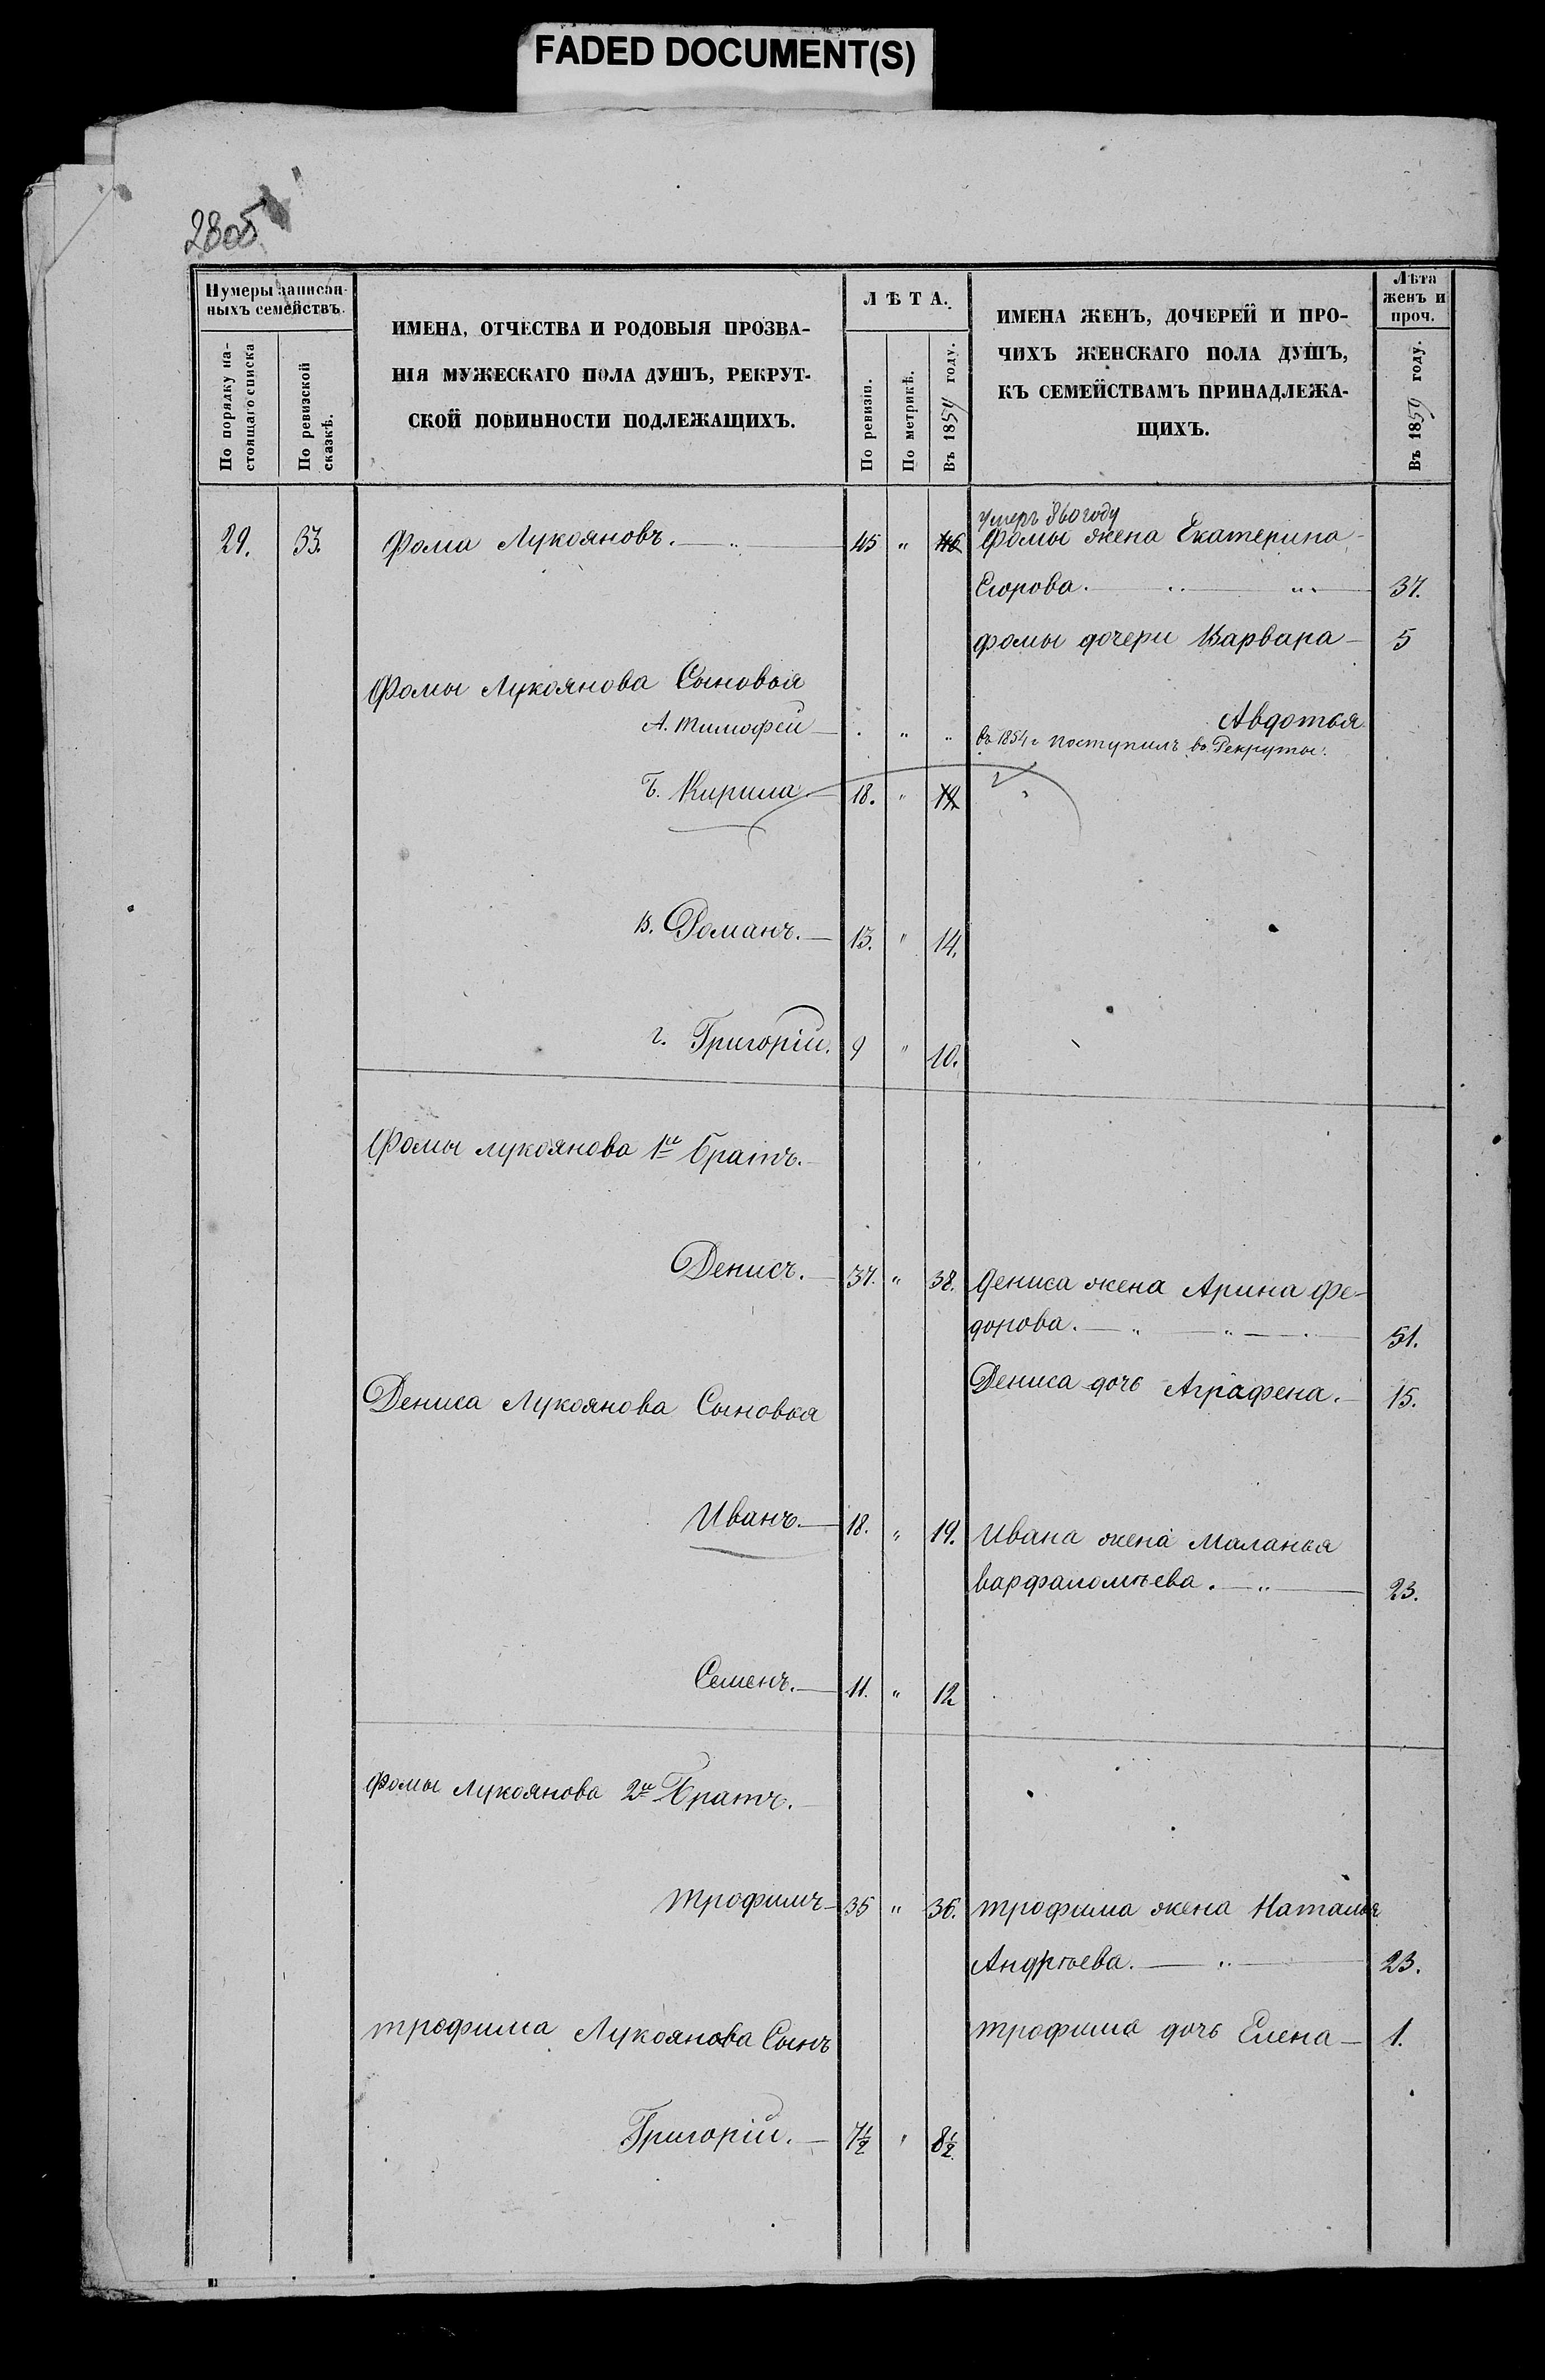 FADED DOCUMENT(S)
280б
Нумеры записан-
ныхъ семействъ.
По порядку на-
стоящаго списка
По ревизской
сказкѣ.
ИМЕНА, ОТЧЕСТВА И РОДОВЫЯ ПРОЗВА-
НІЯ МУЖЕСКАГО ПОЛА ДУШЪ, РЕКРУТ-
СКОЙ ПОВИННОСТИ ПОДЛЕЖАЩИХЪ.
ЛѢТА.
По ревизіи.
По метрикѣ.
Въ 1859 году.
ИМЕНА ЖЕНЪ, ДОЧЕРЕЙ И ПРО-
ЧИХЪ ЖЕНСКАГО ПОЛА ДУШЪ,
КЪ СЕМЕЙСТВАМЪ ПРИНАДЛЕЖА-
ЩИХЪ.
Лѣта
женъ и
проч.
Въ 1859 году.
умеръ 860 году
29. 33. Фома Лукояновъ. 45 " 46 Фомы жена Екатерина
Егорова. 37.
фомы дочери Варвара 5
Фомы Лукоянова Сыновья
Авдотья
А. Тимофей " " въ 1854 г поступилъ въ Рекруты.
Б. Кирила 18. " 19
В. Романъ. 13. " 14.
г. Григорій. 9 " 10.
Фомы лукоянова 1й братъ.
Денисъ. 37. " 38. Дениса жена Арина Фе-
дорова. 51.
Дениса дочь Аграфена. 15.
Дениса Лукоянова Сыновья
Иванъ. 18. " 19. Ивана жена Маланья
варфаломѣева. 23.
Семенъ. 11. " 12
Фомы Лукоянова 2й Братъ.
трофимъ 35 " 36. трофима жена Наталья
Андрѣева. 23.
трофима Лукоянова Сынъ трофима дочь Елена 1.
Григорій. 7½ " 8½